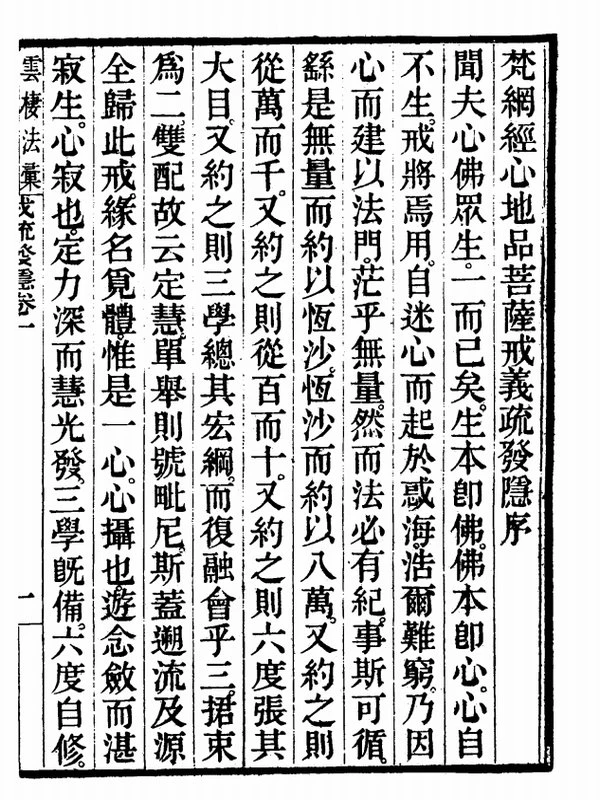 梵網經心地品菩薩戒義疏發隱序
聞夫心佛眾生。一而已矣。生本卽佛。佛本卽心。心自
不生。戒將焉用。自迷心而起於惑海。浩爾難窮。乃因
心而建以法門。茫乎無量。然而法必有紀。事斯可循。
繇是無量而約以恆沙。恆沙而約以八萬。又約之則
從萬而千。又約之則從百而十。又約之則六度張其
大目。又約之則三學總其宏綱。而復融會乎三。捃束
爲二。雙配故云定慧。單舉則號毗尼。斯蓋遡流及源
全歸此戒。緣名覓體。惟是一心。心攝也。遊念斂而湛
寂生。心寂也。定力深而慧光發。三學旣備。六度自修。
雲棲法彙 戒疏發隱卷一 一